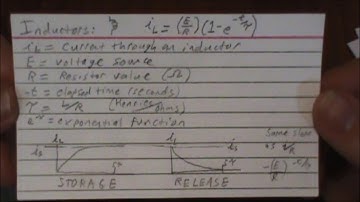 Inductors: L/R iL = (E/R)(1-e^-t/τ)
iL = Current through an inductor
E = voltage source
R = Resistor value (Ω)
t = elapsed time (seconds)
τ = L/R (Henries/ohms)
e^x = exponential function
iL iL Same slope
is
STORAGE RELEASE